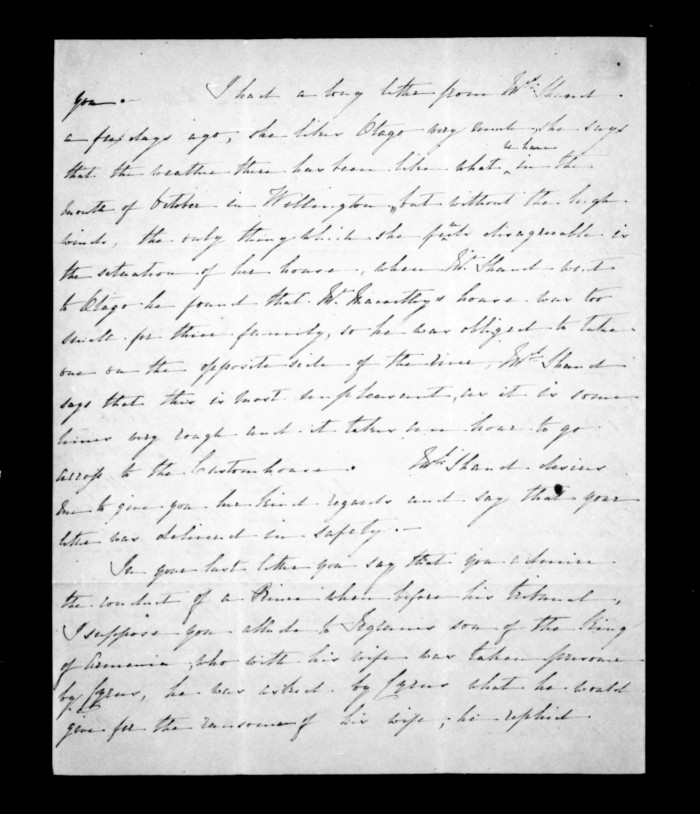 you. — I had a long letter from Mrs. Shand
a few days ago, she likes Otago very much, she says
that the weather there has been like what we have in the
month of October in Wellington, but without the high
winds, the only thing which she finds disagreeable is
the situation of her house, when Mr. Shand went
to Otago he found that Mr. house was too
small for their family, so he was obliged to take
one on the opposite side of the river, Mrs. Shand
says that this is most unpleasant, as it is some
times very rough and it takes an hour to go
across to the Customhouse. Mrs. Shand desires
me to give you her kind regards and say that your
letter was delivered in safety. —
In your last letter you say that you admire
the conduct of a Prince when before his tribunal,
I suppose you allude to Tigranes son of the King
of Armenia, who with his wife was taken prisoner
by Cyrus, he was asked by Cyrus what he would
give for the ransome of his wife, he replied